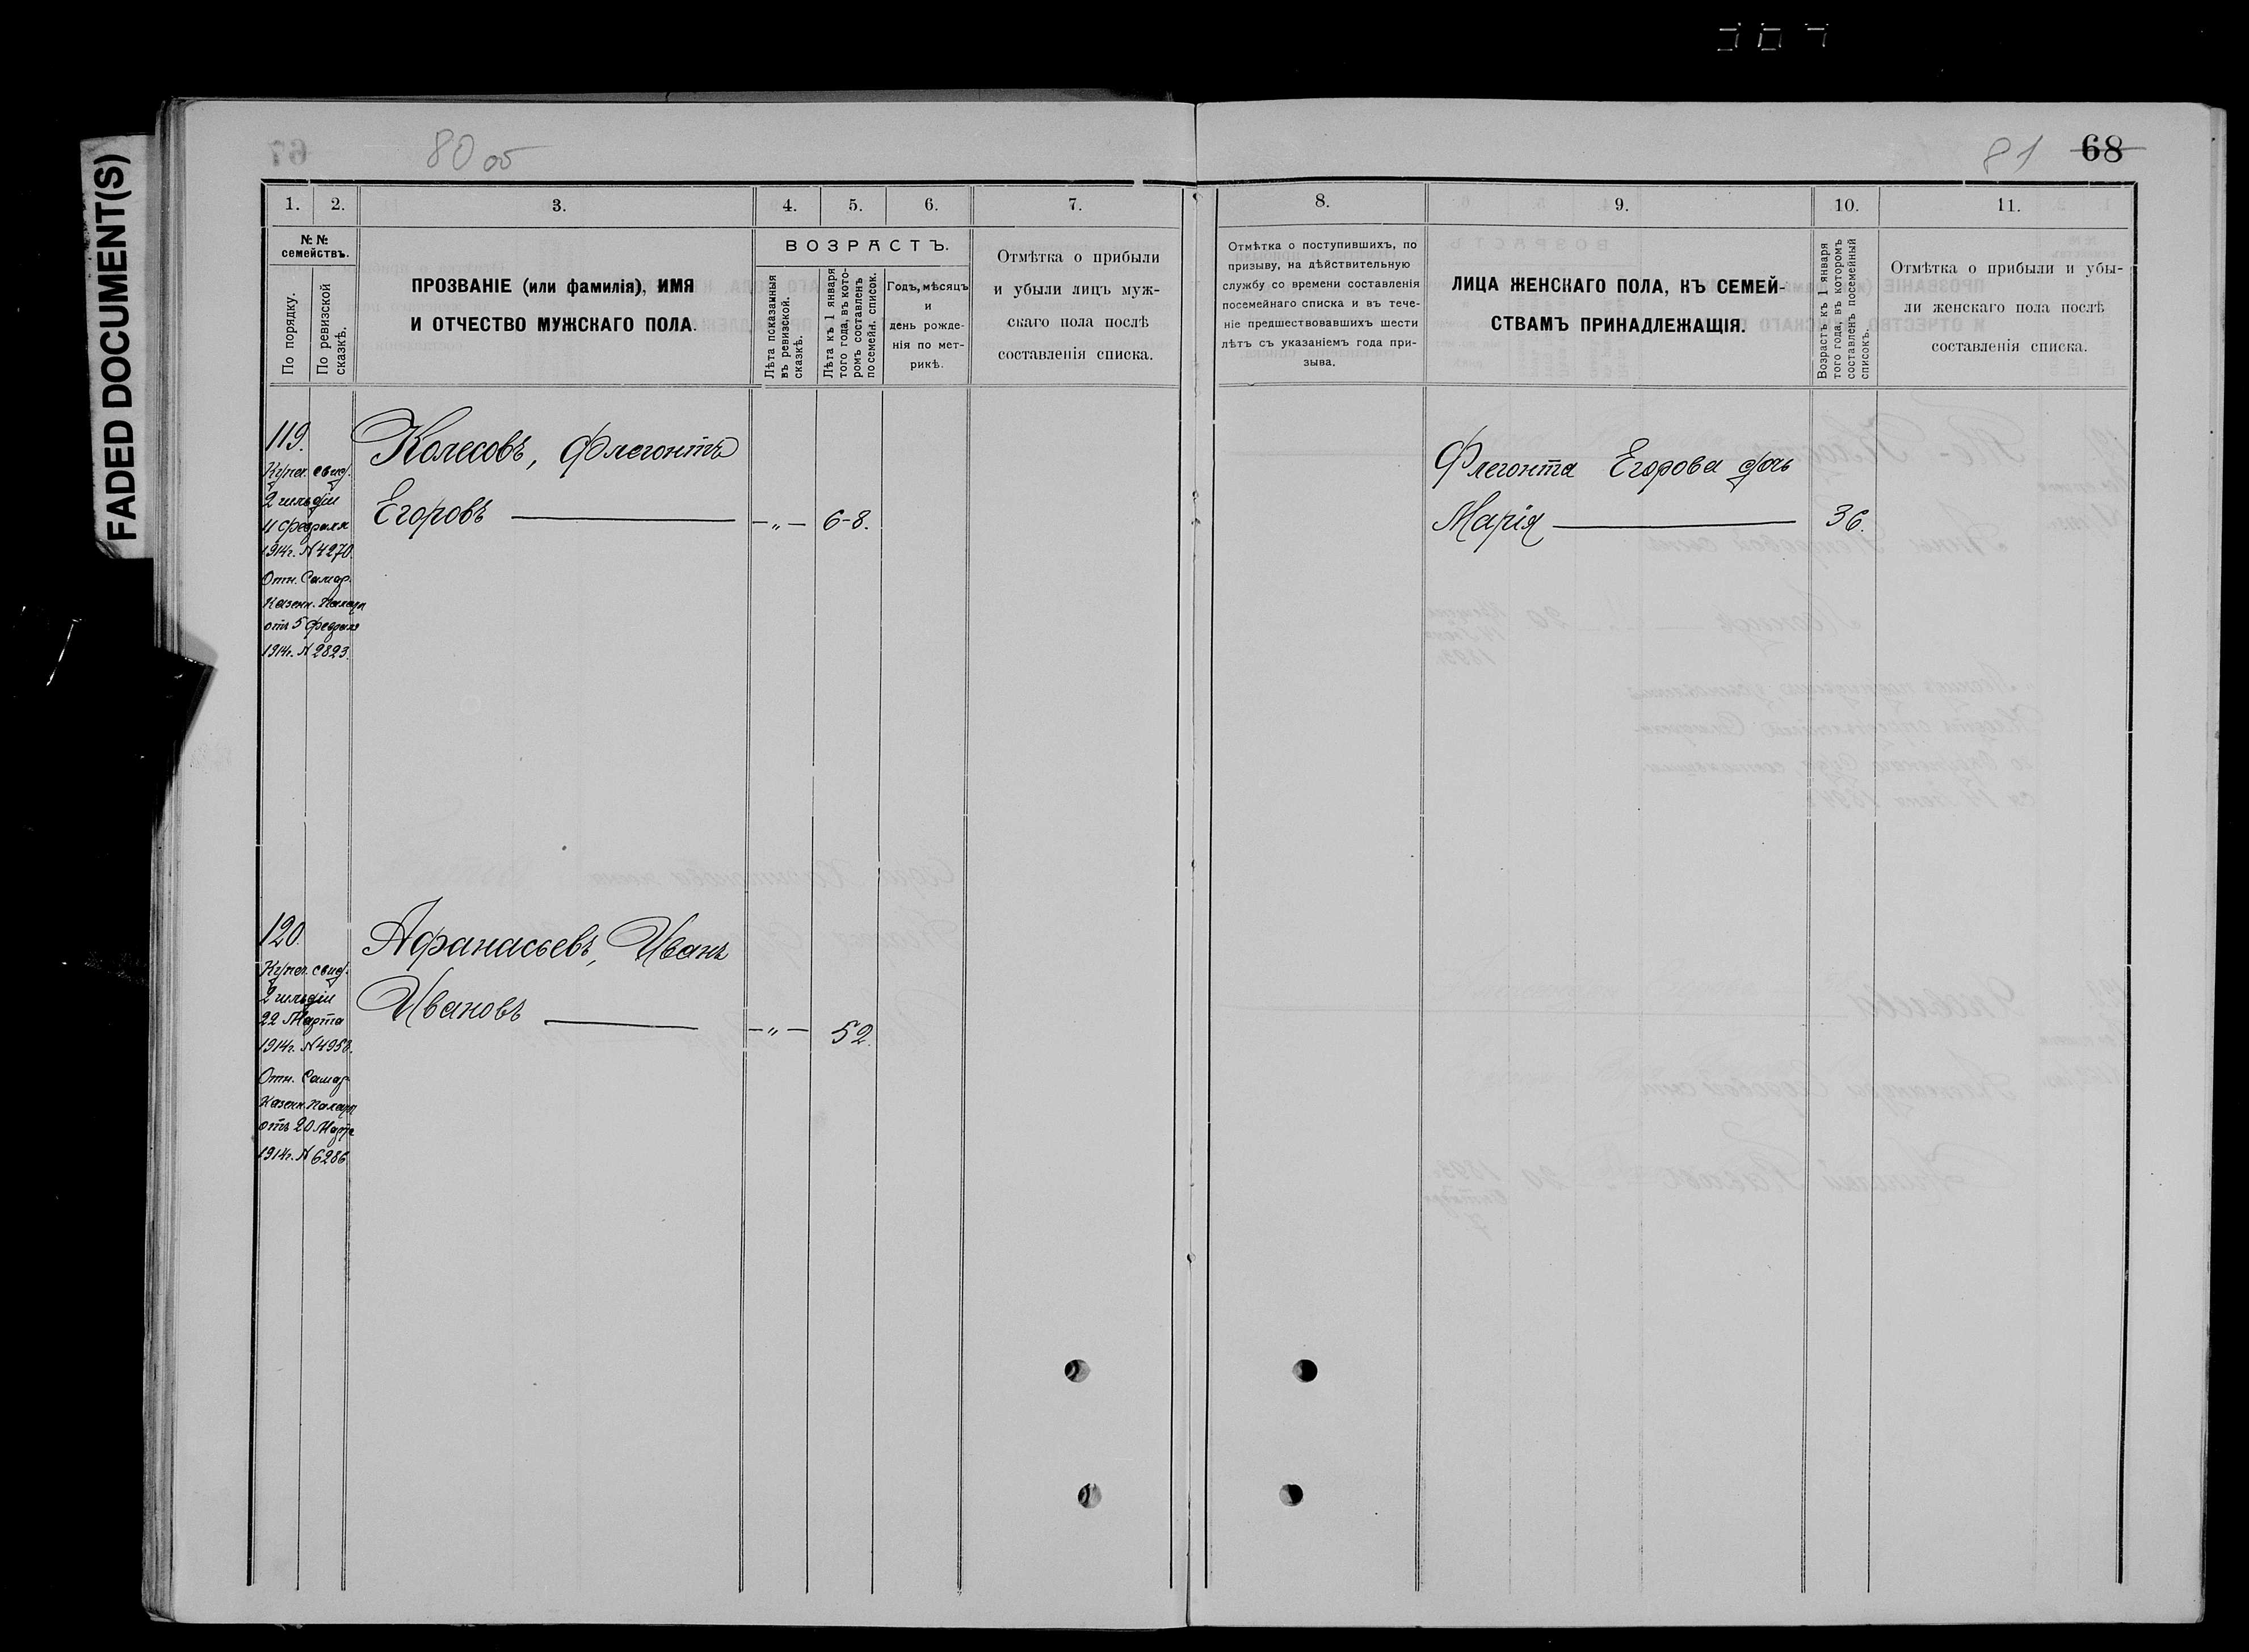 FADED DOCUMENT(S)
80 об
81 68
1. 2. 3. 4. 5. 6. 7.
№ №
семействъ.
По порядку.
По ревизской
сказкѣ.
ПРОЗВАНІЕ (или фамилія), ИМЯ
И ОТЧЕСТВО МУЖСКАГО ПОЛА.
ВОЗРАСТЪ.
Лѣта показанныя
въ ревизской
сказкѣ.
Лѣта къ 1 января
того года, въ кото-
ромъ составленъ
посемейн. список.
Годъ, мѣсяцъ
и
день рожде-
нія по мет-
рикѣ.
Отмѣтка о прибыли
и убыли лицъ муж-
скаго пола послѣ
составленія списка.
119.
Купеч. свид.
2 гильдіи
11 Февраля
1914г. № 4270.
Отн. Самар.
Казенн. Палаты
отъ 5 Февраля
1914г. № 2823.
Колесовъ, Флегонтъ
Егоровъ — — „ — 6-8.
120.
Купеч. свид.
2 гильдіи
22 Марта
1914г. № 4958.
Отн. Самар.
Казенн. Палаты
отъ 20 Марта
1914г. № 6286
Афанасьевъ, Иванъ
Ивановъ — — „ — 52.
8. 9. 10. 11.
Отмѣтка о поступившихъ, по
призыву, на дѣйствительную
службу со времени составленія
посемейнаго списка и въ тече-
ніе предшествовавшихъ шести
лѣтъ съ указаніемъ года при-
зыва.
ЛИЦА ЖЕНСКАГО ПОЛА, КЪ СЕМЕЙ-
СТВАМЪ ПРИНАДЛЕЖАЩІЯ.
Возрастъ къ 1 января
того года, въ которомъ
составленъ посемейный
списокъ.
Отмѣтка о прибыли и убы-
ли женскаго пола послѣ
составленія списка.
Флегонта Егорова дочь
Марія — 36.